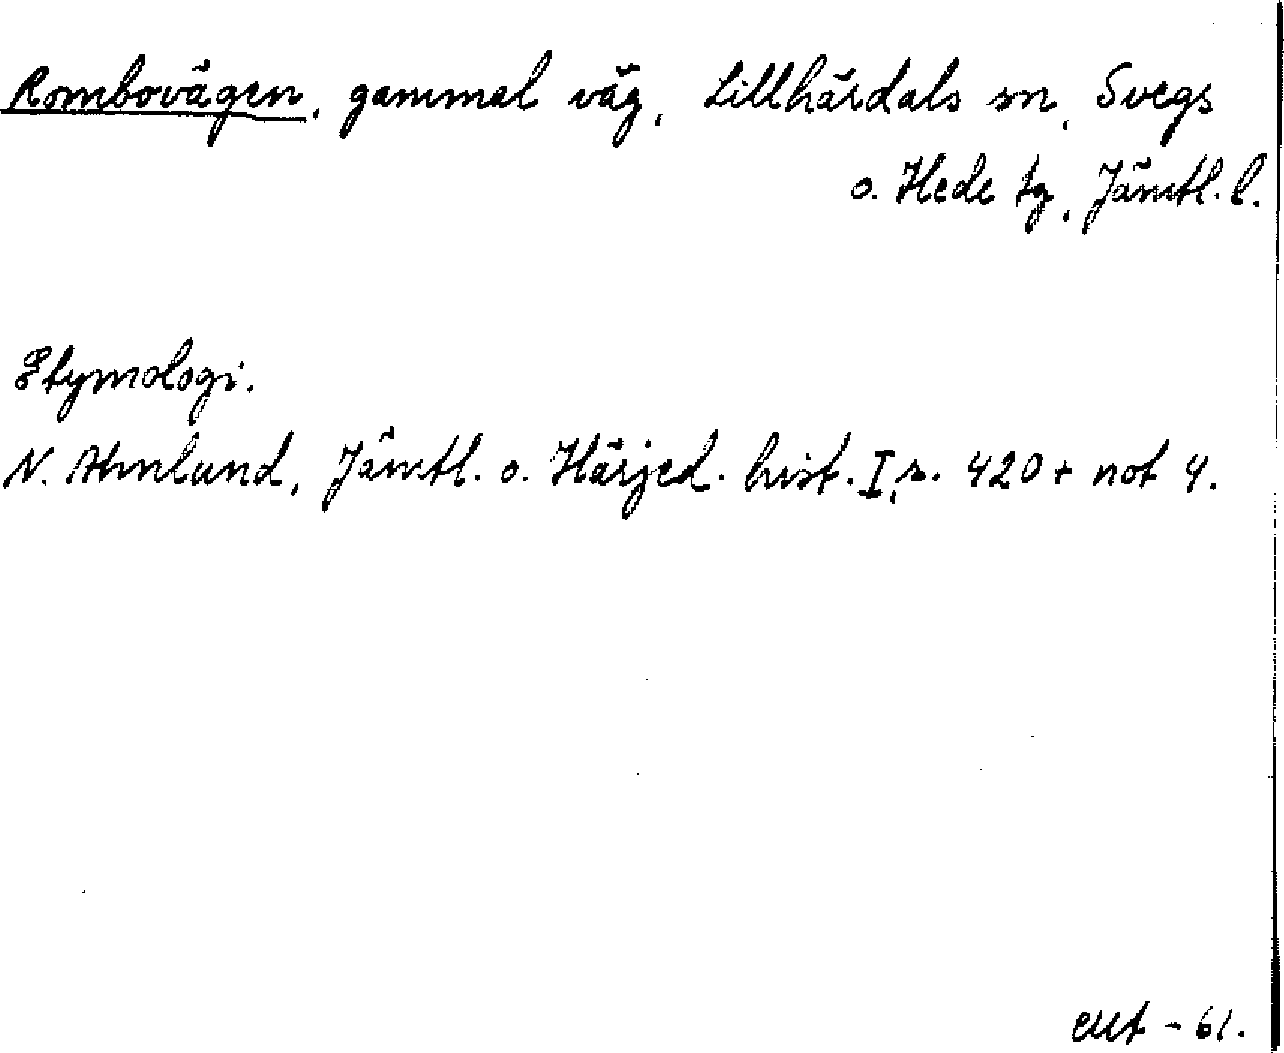 Rombovägen, gammal väg, Lillhärdals sn, Svegs
o. Hede tg, Jämtl. l.
Etymologi.
N. Ahnlund, Jämtl. o. Härjed. hist. I, s. 420 + not 4.
- 61.